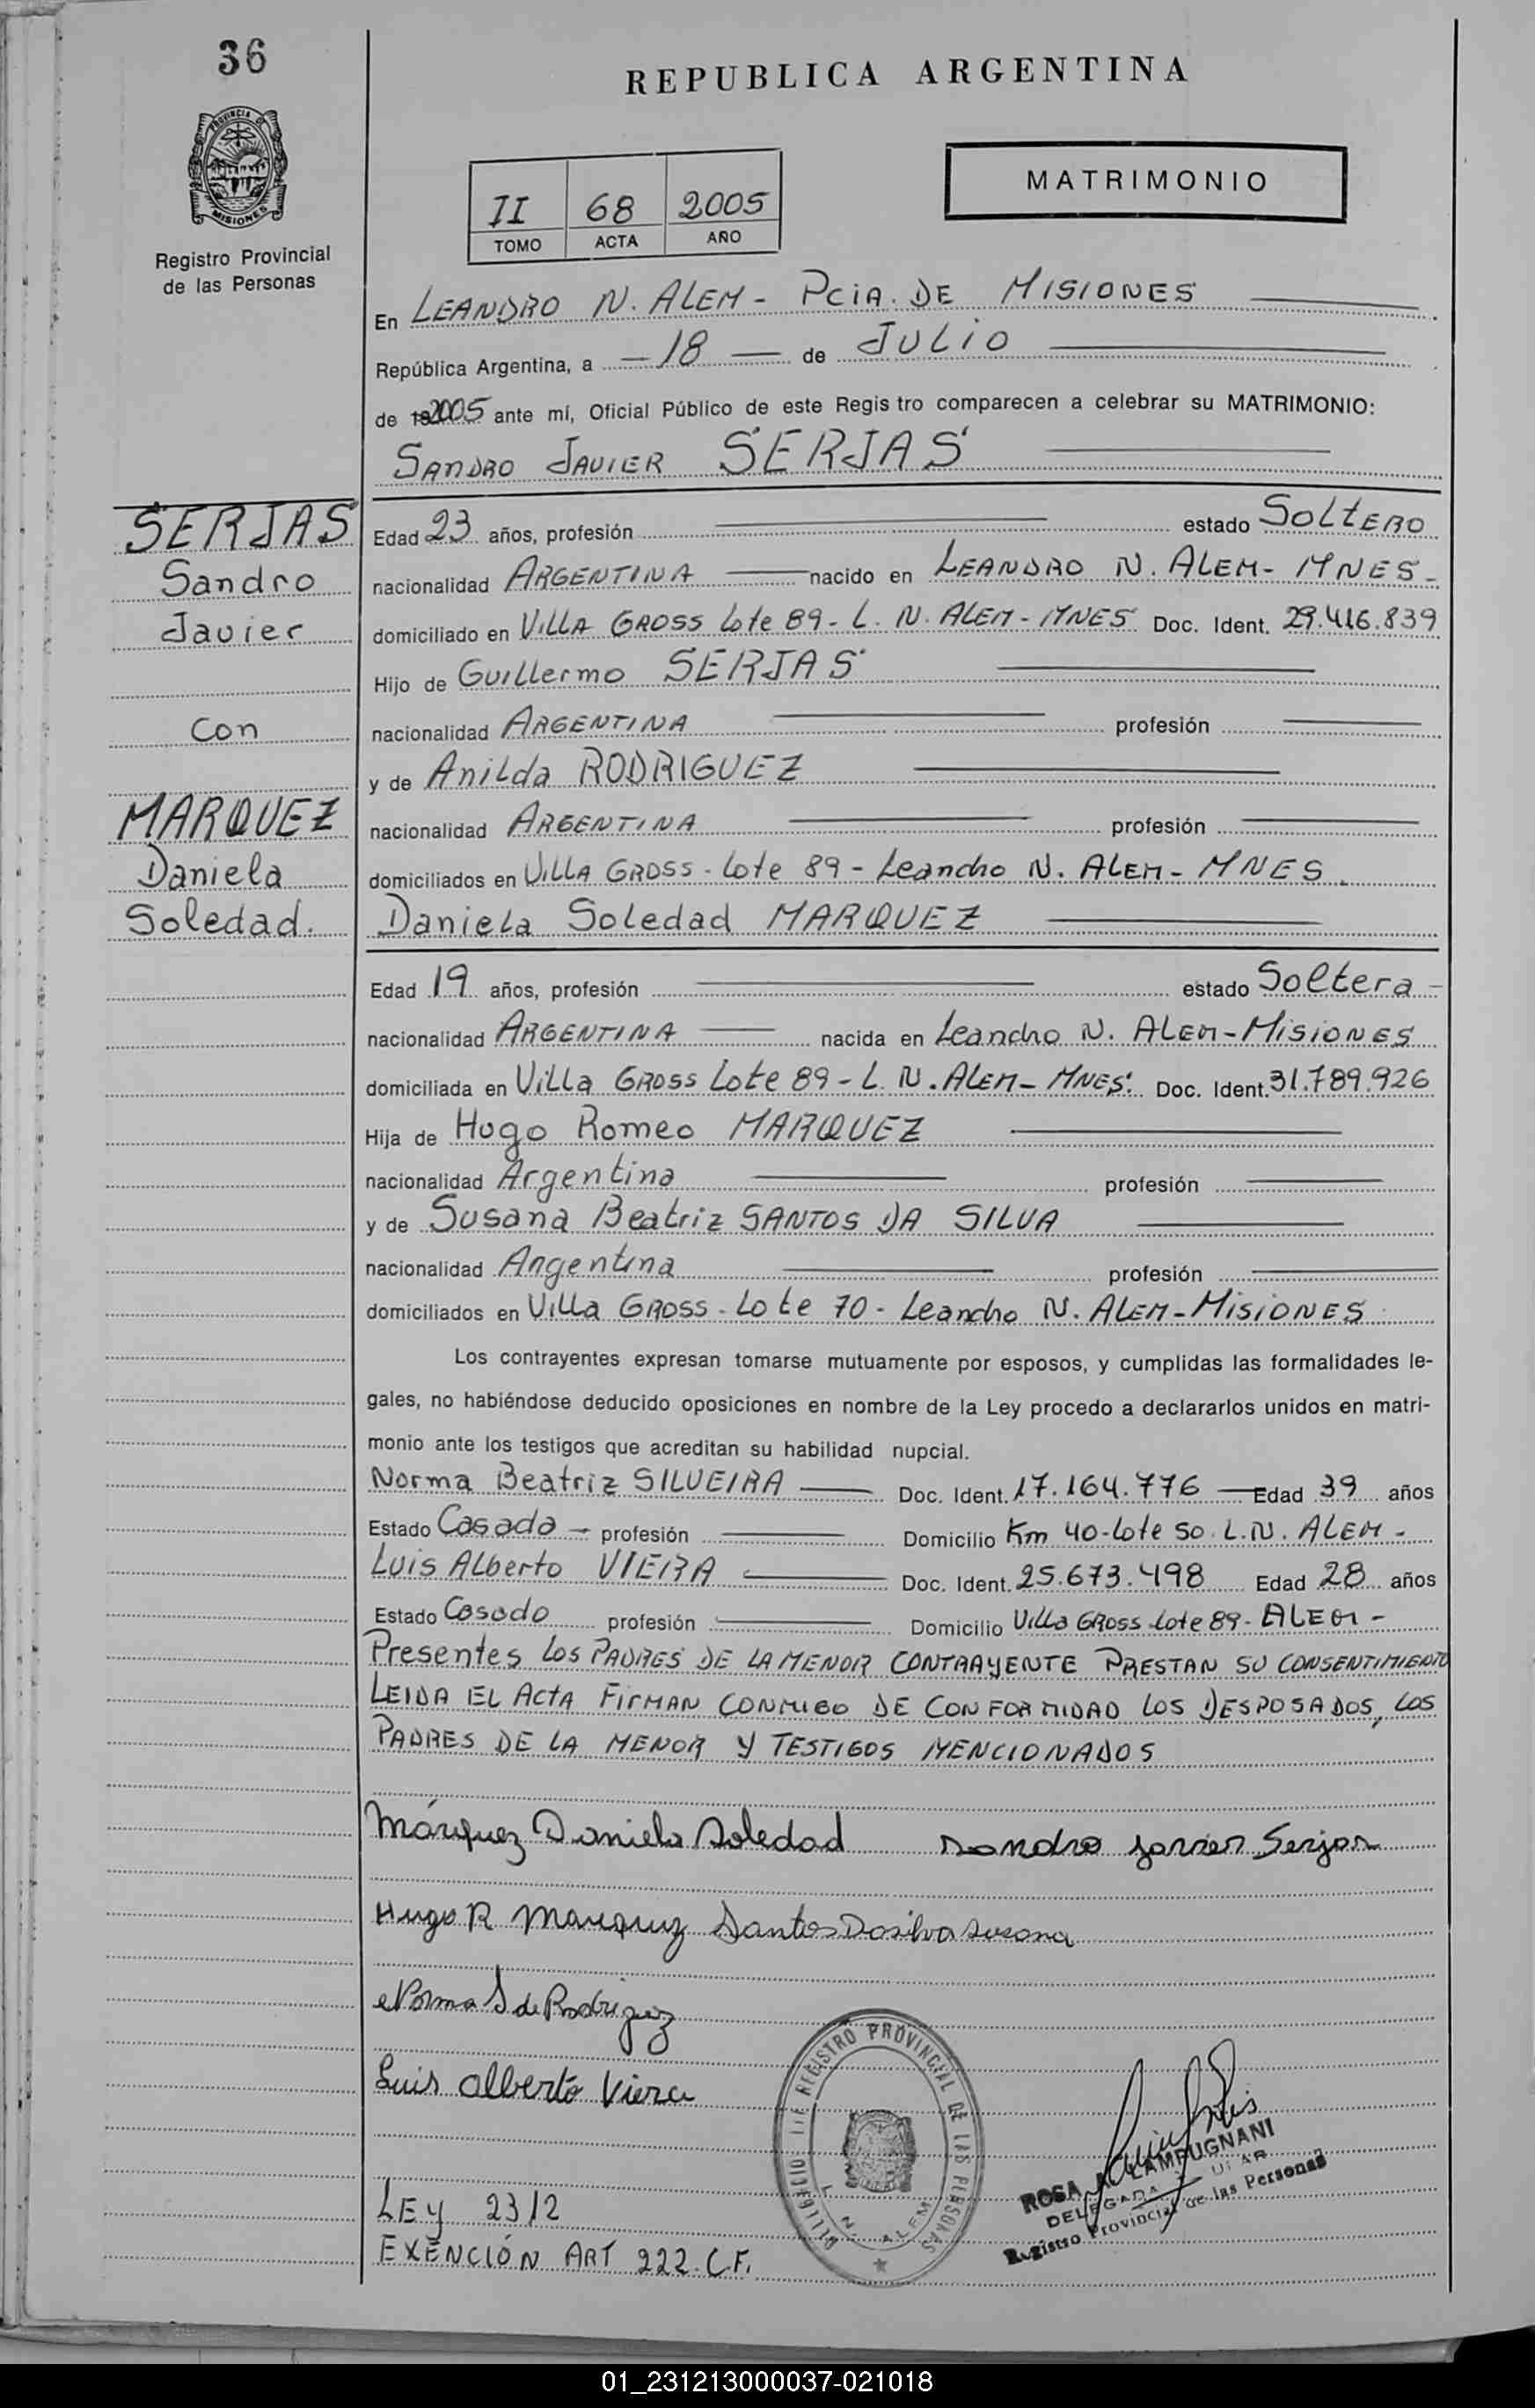 36
REPUBLICA ARGENTINA
PROVINCIA DE
MISIONES
Registro Provincial
de las Personas
II 68 2005
TOMO ACTA AÑO
MATRIMONIO
En LEANDRO N. ALEM - PCIA. DE MISIONES
República Argentina, a -18- de JULIO
de 192005 ante mí, Oficial Público de este Regis tro comparecen a celebrar su MATRIMONIO:
SANDRO JAVIER SERJAS
SERJAS
Sandro
Javier
Con
MARQUEZ
Daniela
Soledad.
Edad 23 años, profesión estado SOLTERO
nacionalidad ARGENTINA nacido en LEANDRO N. ALEM- MNES-
domiciliado en VILLA GROSS Lote 89- L. N. ALEM- MNES Doc. Ident. 29.416.839
Hijo de Guillermo SERJAS
nacionalidad ARGENTINA profesión
y de Anilda RODRIGUEZ
nacionalidad ARGENTINA profesión
domiciliados en VILLA GROSS - Lote 89 - Leandro N. ALEM- MNES.
Daniela Soledad MARQUEZ
Edad 19 años, profesión estado Soltera-
nacionalidad ARGENTINA nacida en Leandro N. ALEM-MISIONES
domiciliada en Villa GROSS Lote 89- L. N. ALEM- MNES. Doc. Ident. 31.789.926
Hija de Hugo Romeo MARQUEZ
nacionalidad Argentina profesión
y de Susana Beatriz SANTOS DA SILVA
nacionalidad Argentina profesión
domiciliados en Villa GROSS - Lote 70 - Leandro N. ALEM-MISIONES
Los contrayentes expresan tomarse mutuamente por esposos, y cumplidas las formalidades le-
gales, no habiéndose deducido oposiciones en nombre de la Ley procedo a declararlos unidos en matri-
monio ante los testigos que acreditan su habilidad nupcial.
Norma Beatriz SILVEIRA Doc. Ident. 17.164.776 Edad 39 años
Estado Casada - profesión Domicilio Km 40-Lote 50. L.N. ALEM-
Luis Alberto VIERA Doc. Ident. 25.673.498 Edad 28 años
Estado Casado profesión Domicilio Villa GROSS Lote 89- ALEM-
Presentes LOS PADRES DE LA MENOR CONTRAYENTE PRESTAN SU CONSENTIMIENTO
LEIDA EL ACTA FIRMAN CONMIGO DE CONFORMIDAD LOS DESPOSADOS, LOS
PADRES DE LA MENOR Y TESTIGOS MENCIONADOS
Márquez Daniela Soledad Sandro Javier Serjas
Hugo R Marquez Santos Dasilva Susana
Norma S de Rodriguez
Luis Alberto Viera
REGISTRO PROVINCIAL DE LAS PERSONAS
L. N. ALEM
ROSA LAMPUGNANI
DELEGADA
Registro Provincial de las Personas
LEY 2312
EXENCIÓN ART 222. C.F.
01_231213000037-021018